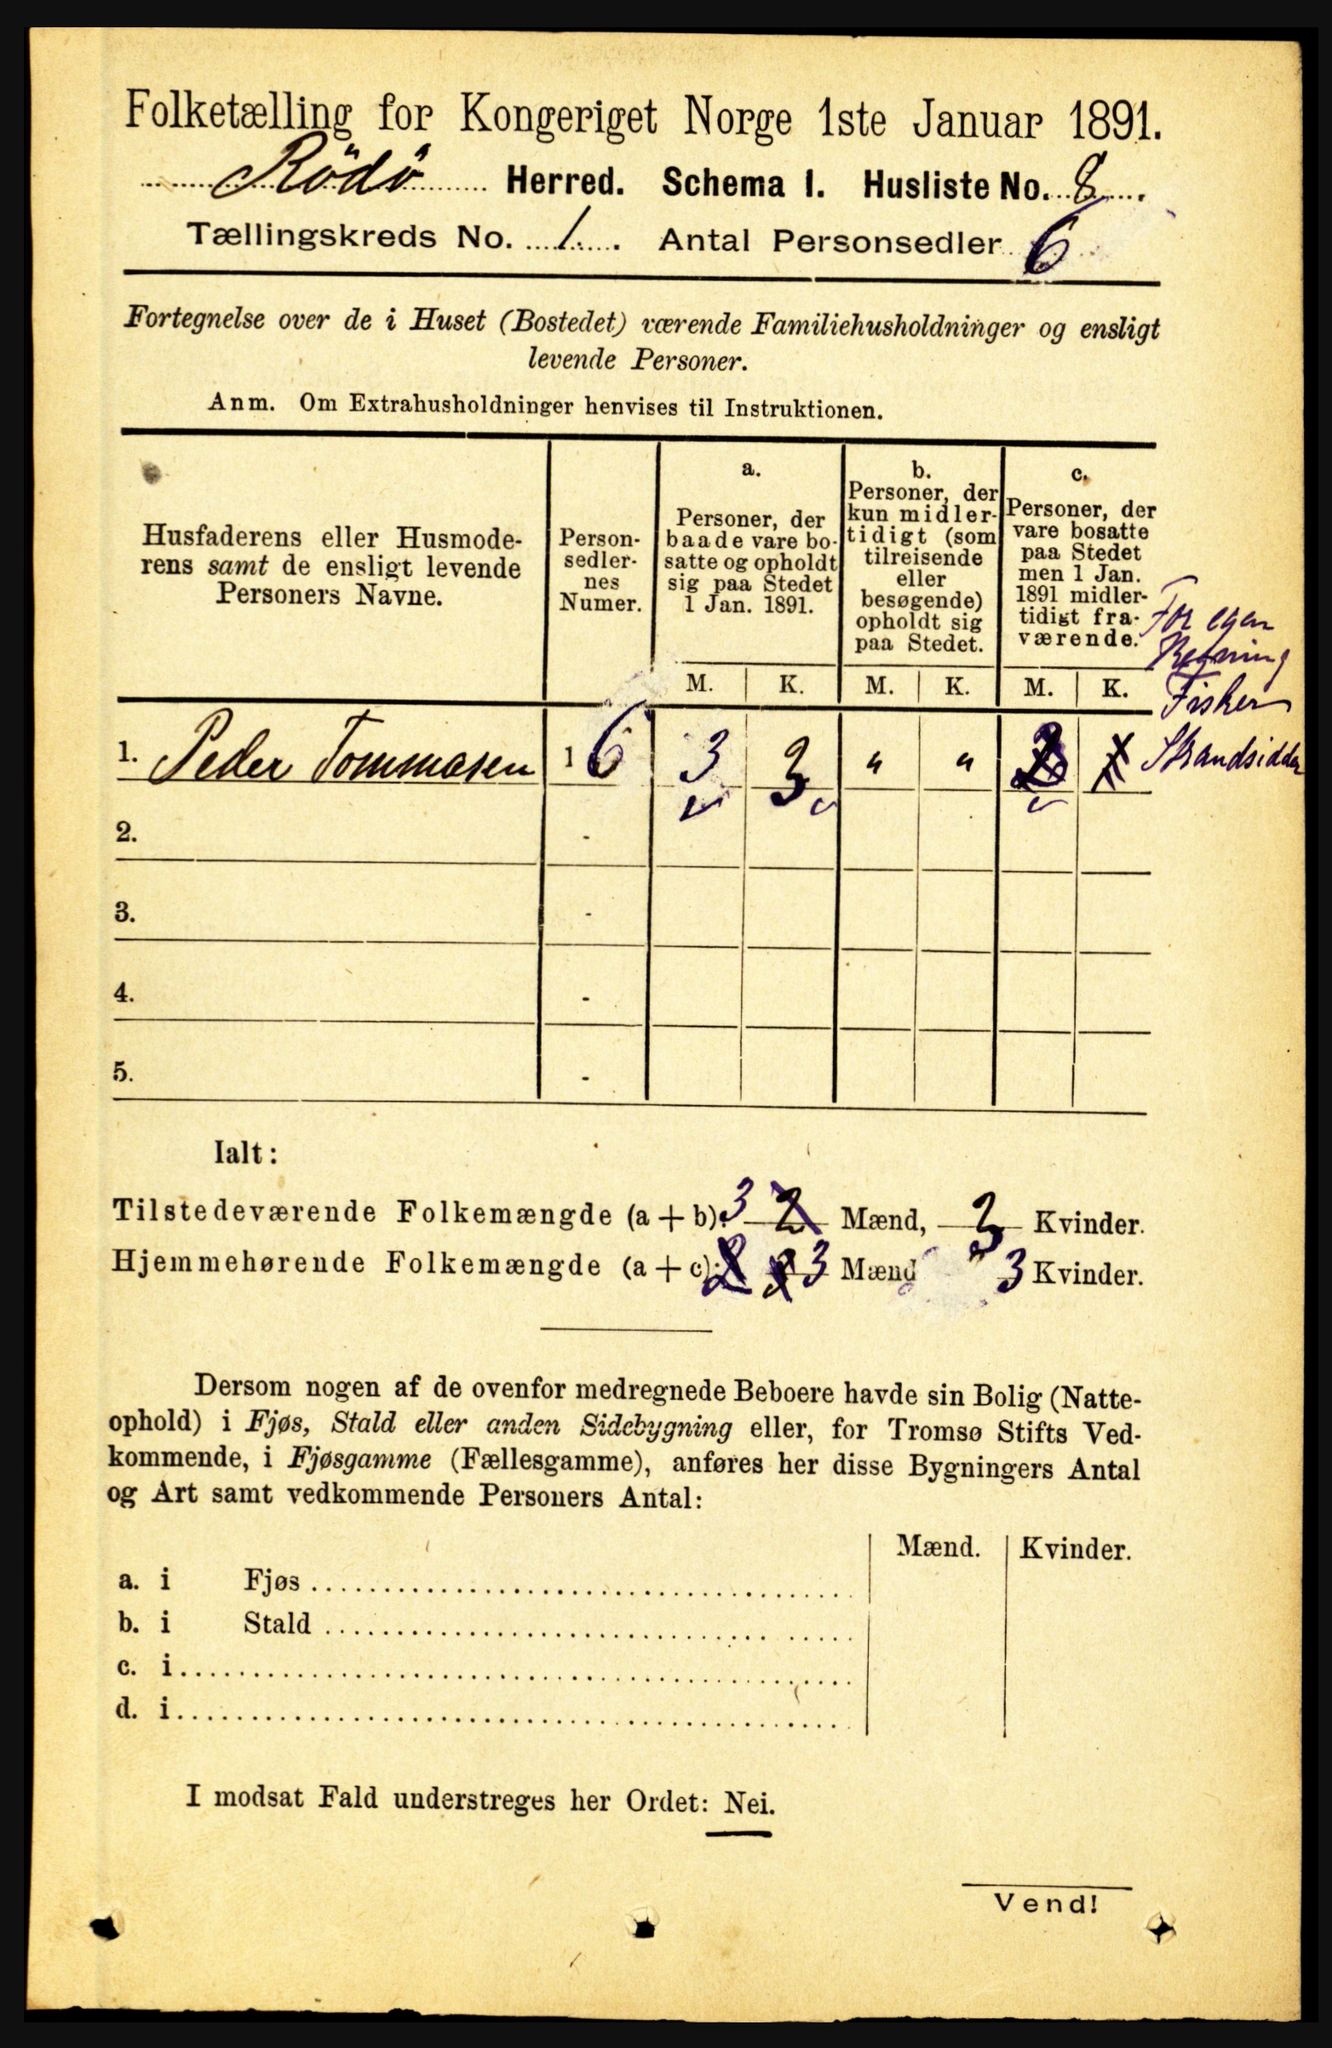 Folketælling for Kongeriget Norge 1ste Januar 1891.
Rödö Herred. Schema I. Husliste No. 8.
Tællingskreds No. 1. Antal Personsedler 6
Fortegnelse over de i Huset (Bostedet) værende Familiehusholdninger og ensligt
levende Personer.
Anm. Om Extrahusholdninger henvises til Instruktionen.
Husfaderens eller Husmode-
rens samt de ensligt levende
Personers Navne.
Person-
sedler-
nes
Numer.
a.
Personer, der
baade vare bo-
satte og opholdt
sig paa Stedet
1 Jan. 1891.
b.
Personer, der
kun midler-
tidigt (som
tilreisende
eller
besøgende)
opholdt sig
paa Stedet.
c.
Personer, der
vare bosatte
paa Stedet
men 1 Jan.
1891 midler-
tidigt fra-
værende.
For egen
Regning
Fisker
Strandsidder
M. K. M. K. M. K.
1. Peder Tommasen 1 6 3 3 " "
2. -
3. -
4. -
5. -
Ialt:
Tilstedeværende Folkemængde (a + b): 3 2 Mænd, 3 Kvinder.
Hjemmehørende Folkemængde (a + c): 3 Mænd 3 Kvinder.
Dersom nogen af de ovenfor medregnede Beboere havde sin Bolig (Natte-
ophold) i Fjøs, Stald eller anden Sidebygning eller, for Tromsø Stifts Ved-
kommende, i Fjøsgamme (Fællesgamme), anføres her disse Bygningers Antal
og Art samt vedkommende Personers Antal:
Mænd. Kvinder.
a. i Fjøs
b. i Stald
c. i
d. i
I modsat Fald understreges her Ordet: Nei.
Vend!